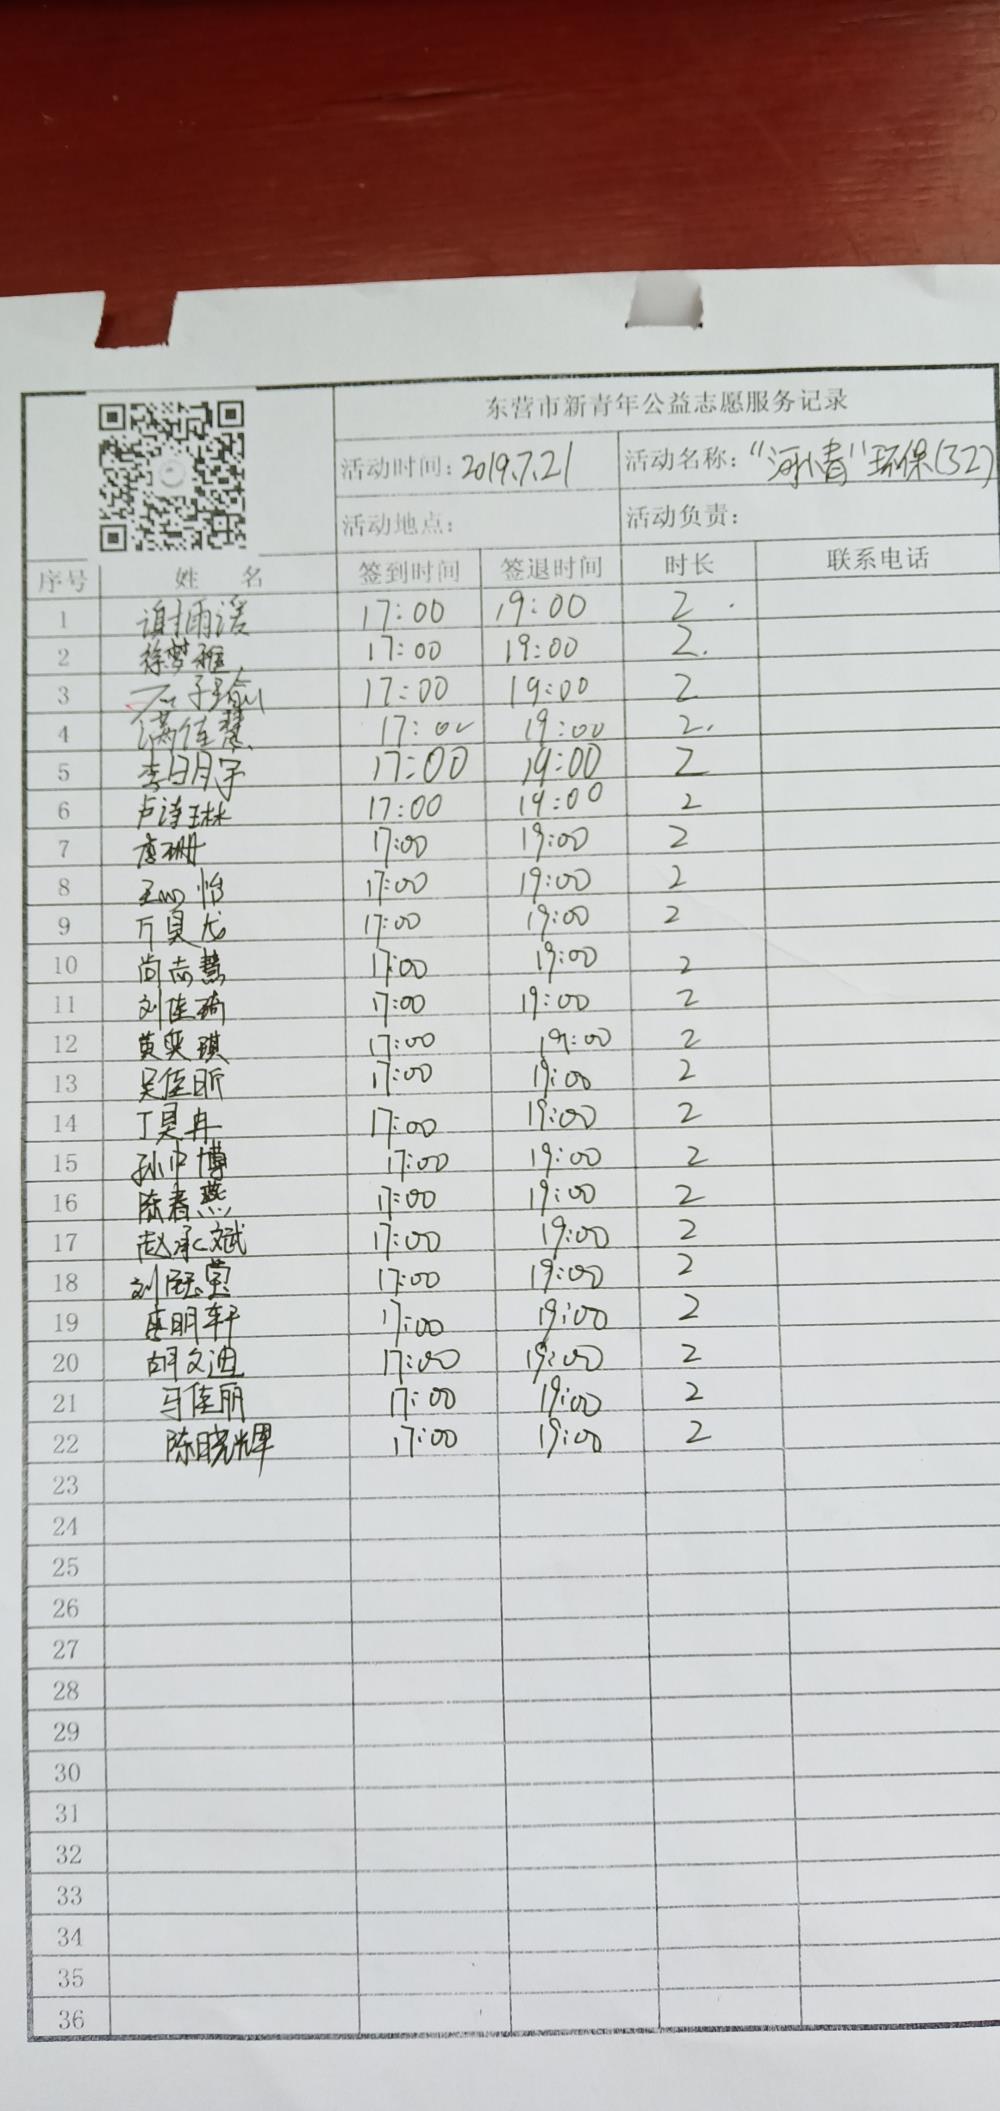 东营市新青年公益志愿服务记录
活动时间：2019.7.21 活动名称："河小青"环保(32)
活动地点： 活动负责：
序号 姓 名 签到时间 签退时间 时长 联系电话
1 谢雨湲 17:00 19:00 2
2 徐梦雅 17:00 19:00 2
3 石子瑜 17:00 19:00 2
4 满佳慧 17:00 19:00 2
5 李明宇 17:00 19:00 2
6 卢诗琳 17:00 19:00 2
7 唐珊 17:00 19:00 2
8 怡 17:00 19:00 2
9 万昊龙 17:00 19:00 2
10 尚志慧 17:00 19:00 2
11 刘佳琦 17:00 19:00 2
12 黄奕琪 17:00 19:00 2
13 吴佳昕 17:00 19:00 2
14 丁昊冉 17:00 19:00 2
15 孙中博 17:00 19:00 2
16 陈春燕 17:00 19:00 2
17 赵承斌 17:00 19:00 2
18 刘 17:00 19:00 2
19 明轩 17:00 19:00 2
20 胡文迪 17:00 19:00 2
21 马佳丽 17:00 19:00 2
22 陈晓辉 17:00 19:00 2
23
24
25
26
27
28
29
30
31
32
33
34
35
36